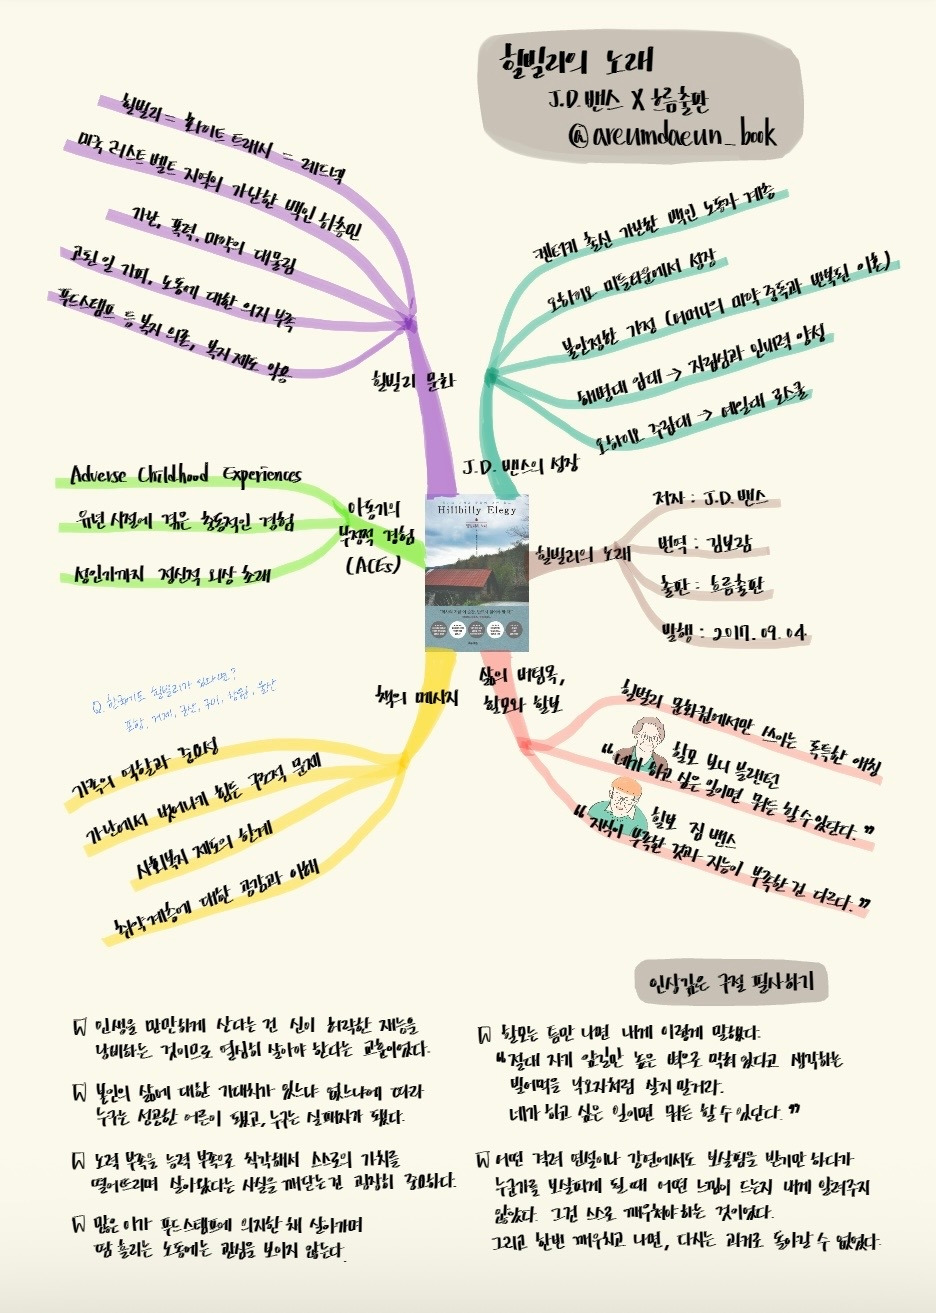 힐빌리의 노래
J.D. 밴스 X 흐름출판
@areumdaeun_book
힐빌리 = 화이트 트래시 = 레드넥
미국 러스트 벨트 지역의 가난한 백인 하층민
가난, 폭력, 마약의 대물림
고된 일 기피, 노동에 대한 의지 부족
푸드스탬프 등 복지 의존, 복지 제도 악용
힐빌리 문화
켄터키 출신 가난한 백인 노동자 계층
오하이오 미들타운에서 성장
불안정한 가정 (어머니의 마약 중독과 반복된 이혼)
해병대 입대 → 자립심과 인내력 양성
오하이오 주립대 → 예일대 로스쿨
J.D. 밴스의 성장
Adverse Childhood Experiences
유년 시절에 겪은 충동적인 경험
성인기까지 정신적 외상 초래
아동기의
부정적 경험
(ACEs)
Hillbilly Elegy
힐빌리의 노래
저자 : J.D. 밴스
번역 : 김보람
출판 : 흐름출판
발행 : 2017. 09. 04
책의 메시지
Q. 한국에도 힐빌리가 있다면?
포항, 거제, 군산, 구미, 창원, 울산
가족의 역할과 중요성
가난에서 벗어나기 힘든 구조적 문제
사회복지 제도의 한계
취약계층에 대한 공감과 이해
삶의 버팀목,
할모와 할보
힐빌리 문화권에서만 쓰이는 독특한 애칭
할모 보니 블랜턴
“네가 하고 싶은 일이면 뭐든 할 수 있단다.”
할보 짐 밴스
“지식이 부족한 것과 지능이 부족한 건 다르다.”
인상깊은 구절 필사하기
인생을 만만하게 산다는 건 신이 허락한 재능을
낭비하는 것이므로 열심히 살아야 한다는 교훈이었다.
본인의 삶에 대한 기대치가 있느냐 없느냐에 따라
누구는 성공한 어른이 됐고, 누구는 실패자가 됐다.
노력 부족을 능력 부족으로 착각해서 스스로의 가치를
떨어뜨리며 살아왔다는 사실을 깨닫는 건 굉장히 중요하다.
많은 이가 푸드스탬프에 의지한 채 살아가며
땀 흘리는 노동에는 관심을 보이지 않는다.
할모는 틈만 나면 내게 이렇게 말했다.
“절대 자기 앞길만 높은 벽으로 막혀 있다고 생각하는
빌어먹을 낙오자처럼 살지 말거라.
네가 하고 싶은 일이면 뭐든 할 수 있단다.”
어떤 격려 연설이나 강연에서도 보살핌을 받기만 하다가
누군가를 보살피게 될 때 어떤 느낌이 드는지 내게 알려주지
않았다. 그건 스스로 깨우쳐야 하는 것이었다.
그리고 한번 깨우치고 나면, 다시는 과거로 돌아갈 수 없었다.